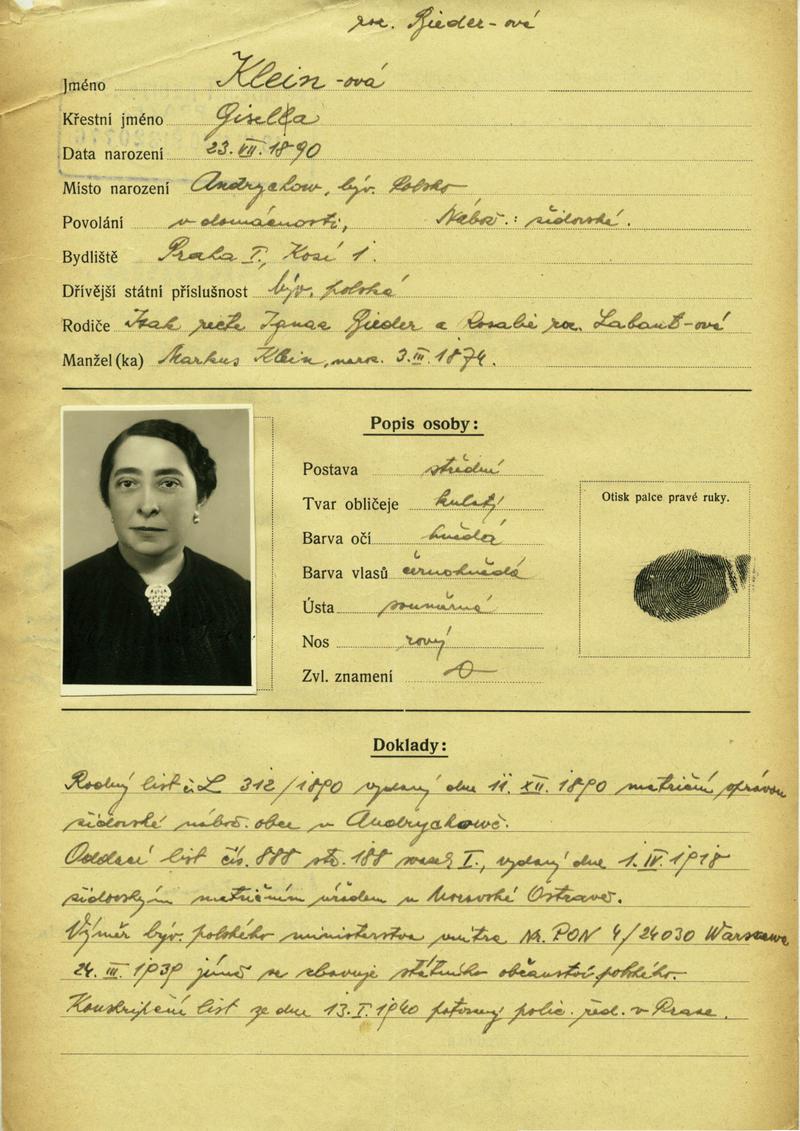 roz. Bieder-ová
Jméno Klein-ová
Křestní jméno Gisella
Data narození 23. VII. 1890
Místo narození Andrychow, býv. Polsko
Povolání v domácnosti, Nábož.: židovské.
Bydliště Praha I., Kosí 1.
Dřívější státní příslušnost býv. polská
Rodiče Isak recte Ignac Bieder a Rosalie roz. Labant-ová
Manžel(ka) Markus Klein, naroz. 3. III. 1874.
Popis osoby:
Postava střední
Tvar obličeje kulatý
Barva očí hnědá
Barva vlasů černohnědá
Ústa souměrná
Nos rovný
Zvl. znamení 0
Otisk palce pravé ruky.
Doklady:
Rodný list č. L 312/1890 vydaný dne 11. XII. 1890 matriční správou
židovské nábož. obce v Andrychowě.
Oddací list čís. 888 str. 188 svazek I., vydaný dne 1. IV. 1918
židovským matričním úřadem v Moravské Ostravě.
Výměr býv. polského ministerstva vnitra Nr. PON 4/24030 Warszawa
24. III. 1939 jímž se zbavuje státního občanství polského.
Konskripční list ze dne 13. I. 1940 potvrzený polic. řed. v Praze.